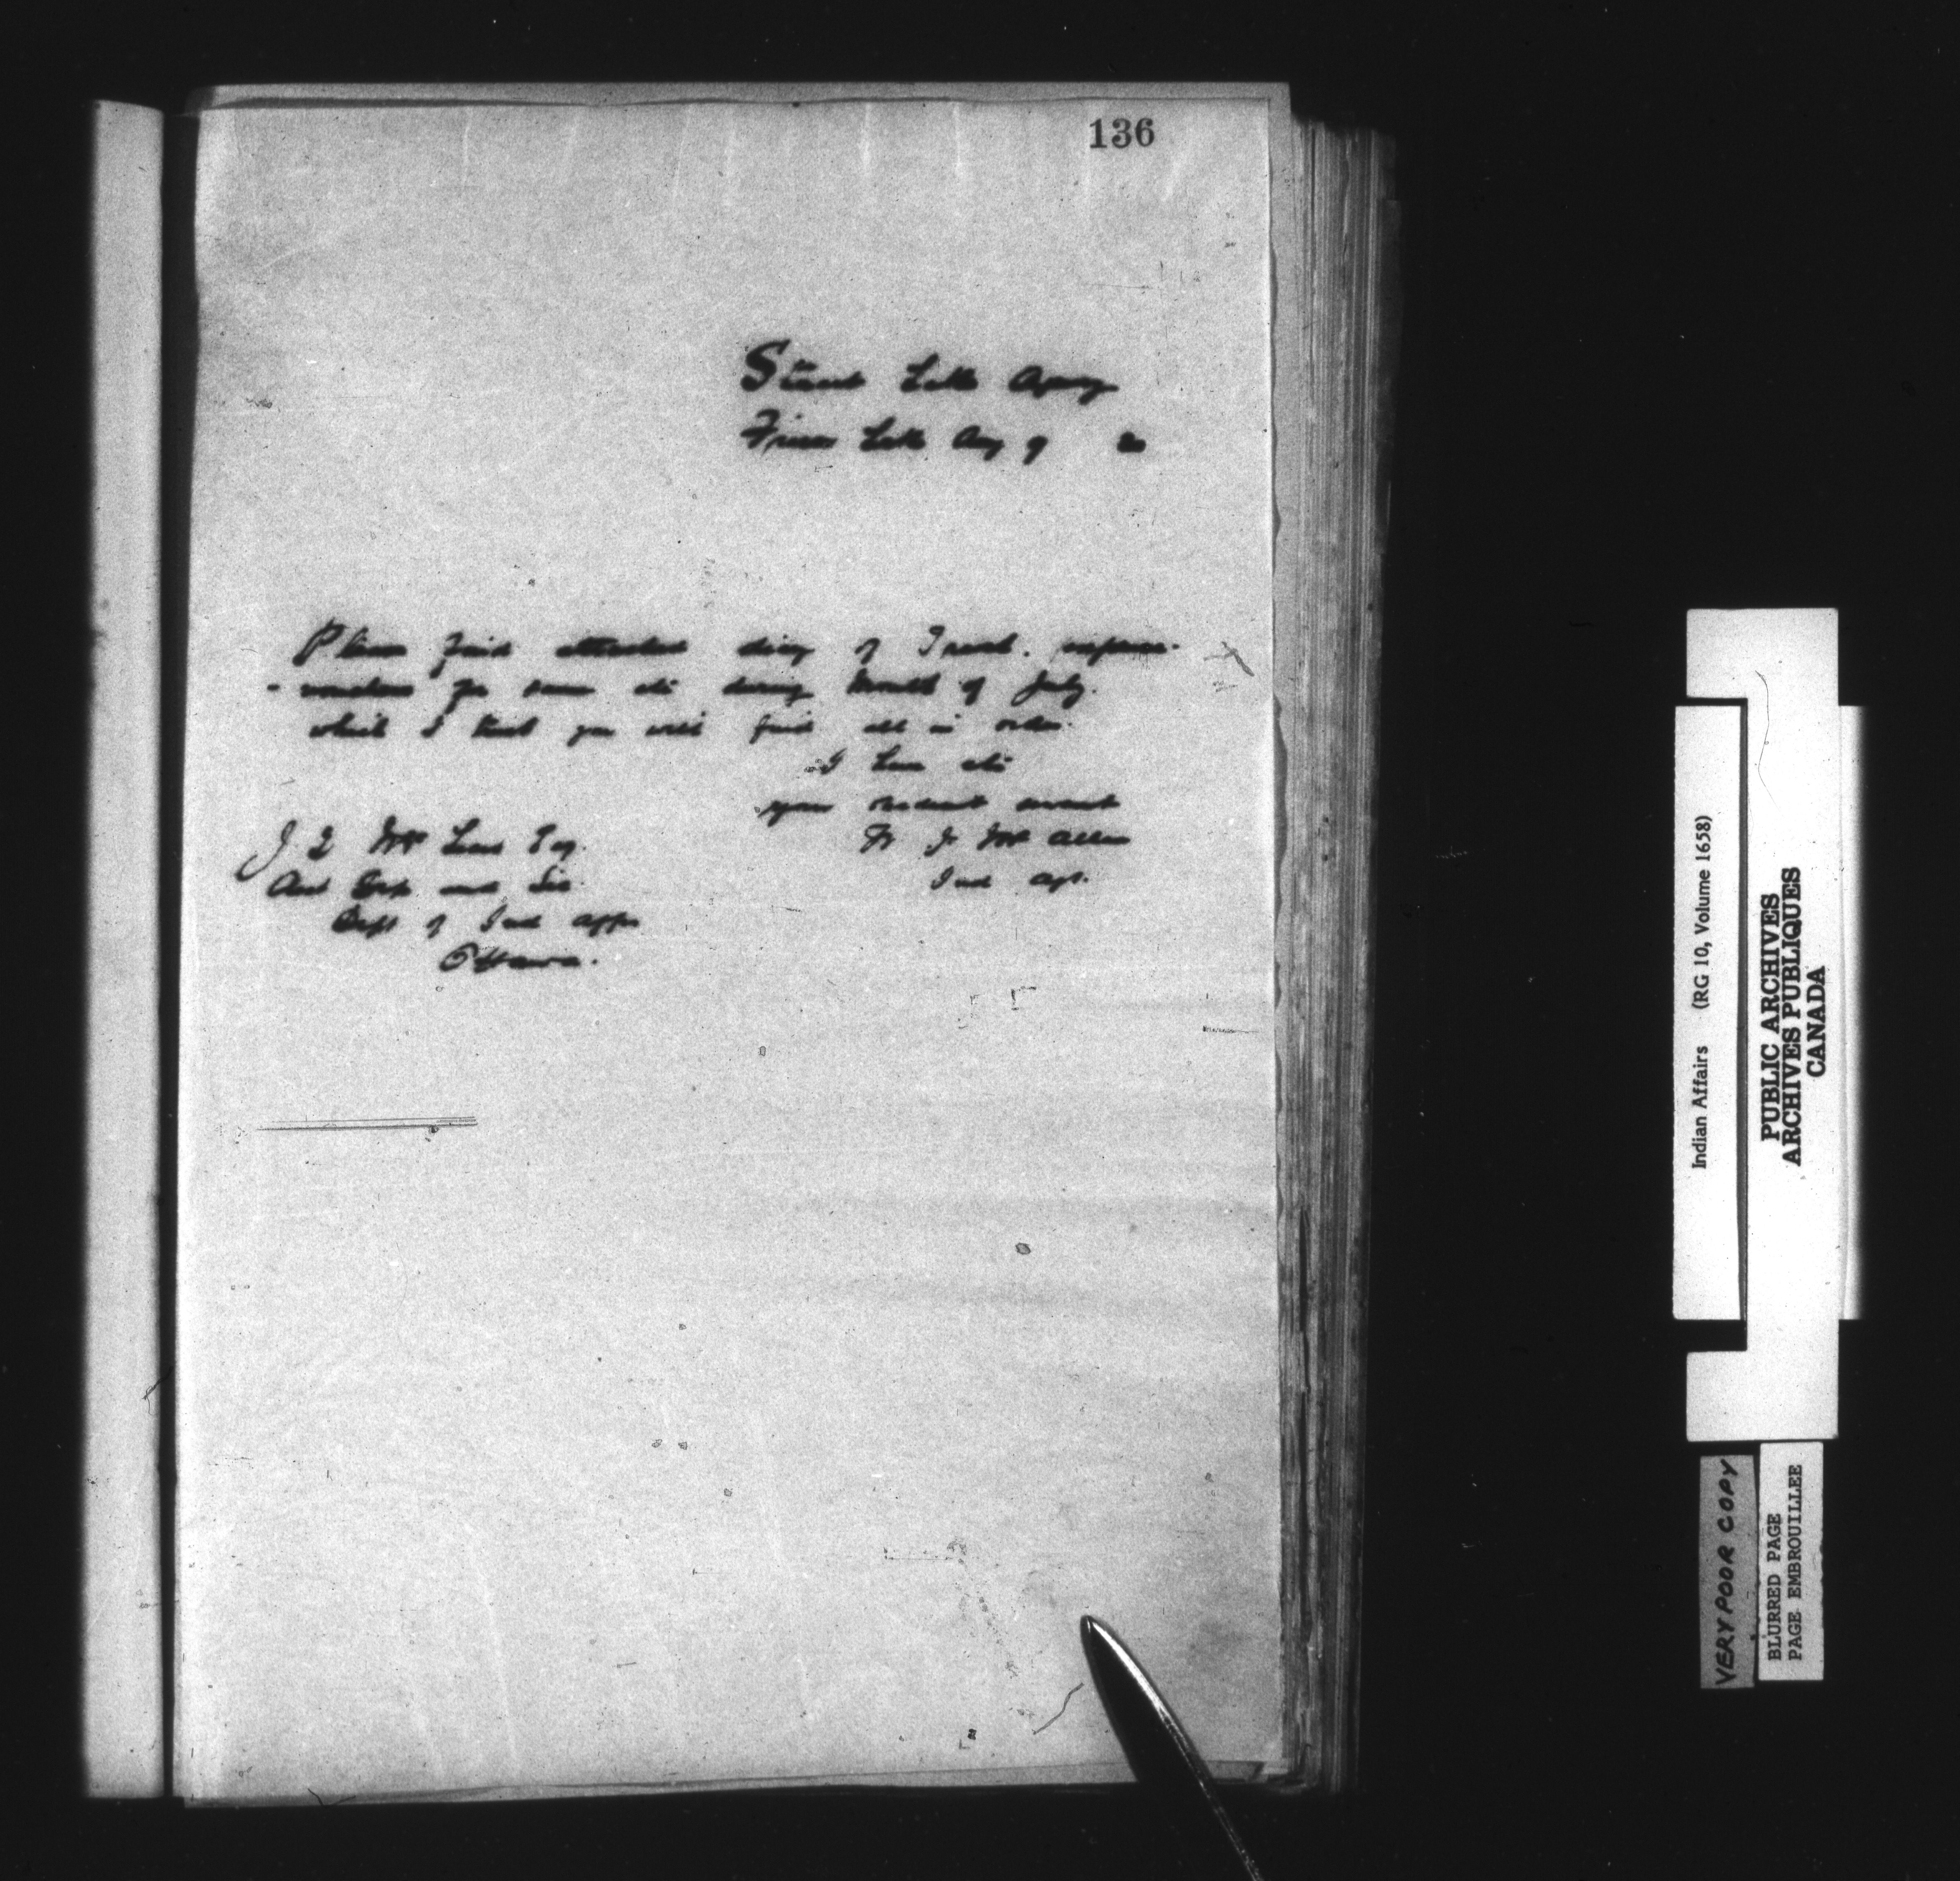 136
Stuart Lake Agency
Fraser Lake Aug 9 20
Please find attached diary of Travel. expense
- vouchers for same etc during Month of July.
which I trust you will find all in order.
I have etc
your obedient servant
W J McAllan
Ind Agt.
J D McLean Esq.
Asst Dep and Sec.
Dept of Ind Affrs
Ottawa.
Indian Affairs (RG 10, Volume 1658)
PUBLIC ARCHIVES
ARCHIVES PUBLIQUES
CANADA
VERY POOR COPY
BLURRED PAGE
PAGE EMBROUILLEE